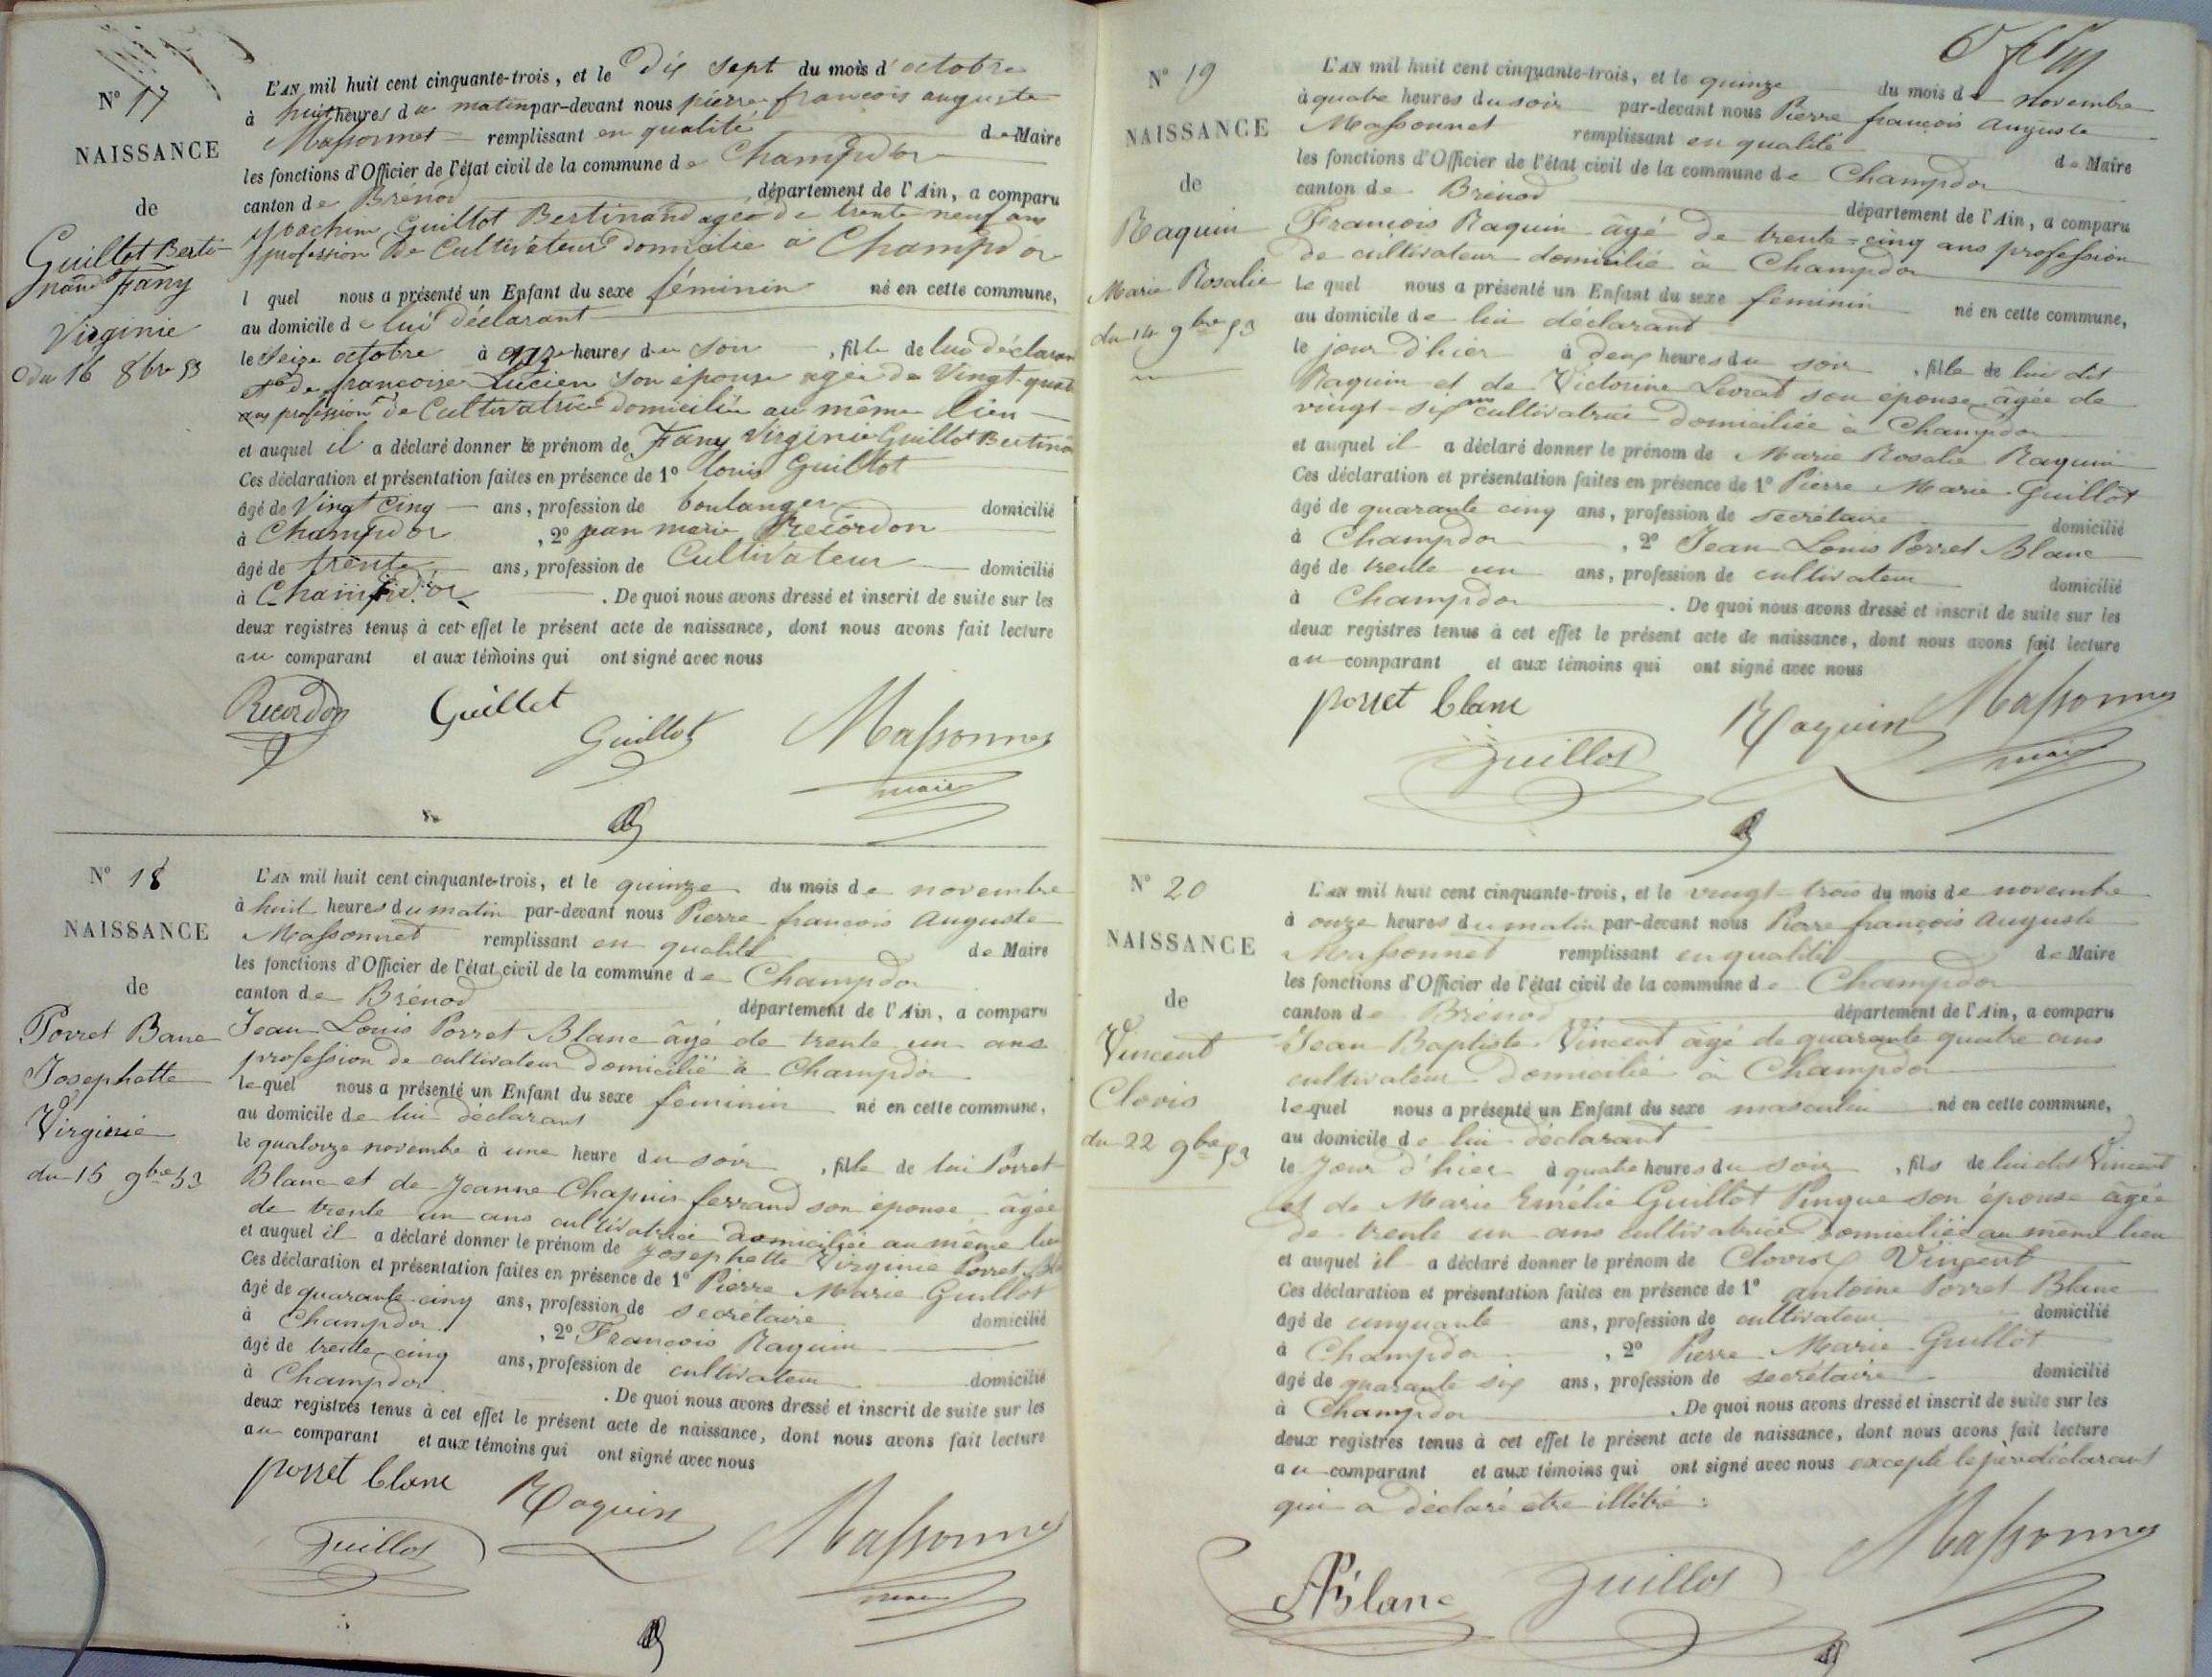 N° 17
NAISSANCE
de
Guillot Berti-
nand Fany
Virginie
du 16 8bre 53
L'AN mil huit cent cinquante-trois, et le dix sept du mois d'octobre
à huit heures du matin par-devant nous pierre francois auguste
Massonnet remplissant en qualité de Maire
les fonctions d'Officier de l'état civil de la commune de Champdor
canton de Brénod département de l'Ain, a comparu
Joachim Guillot Bertinand agé de trente neuf ans
profession de Cultivateur domicilié à Champdor
l quel nous a présenté un Enfant du sexe féminin né en cette commune,
au domicile de lui déclarant
le Seize octobre à onze heures du soir, fille de lui déclarant
et de francoise Lucien son épouse agée de Vingt quatre
ans profession de Cultivatrice domiciliée au même lieu
et auquel il a déclaré donner le prénom de Fany Virginie Guillot Bertinand
Ces déclaration et présentation faites en présence de 1° louis Guillot
âgé de Vingt cinq ans, profession de boulanger domicilié
à Champdor, 2° jean marie Recordon
âgé de trente ans, profession de Cultivateur domicilié
à Champdor. De quoi nous avons dressé et inscrit de suite sur les
deux registres tenus à cet effet le présent acte de naissance, dont nous avons fait lecture
au comparant et aux témoins qui ont signé avec nous
Recordon Guillot Guillot Massonnet
maire
N° 18
NAISSANCE
de
Porret Bane
Josephette
Virginie
du 15 9bre 53
L'AN mil huit cent cinquante-trois, et le quinze du mois de novembre
à huit heures du matin par-devant nous Pierre francois Auguste
Massonnet remplissant en qualité de Maire
les fonctions d'Officier de l'état civil de la commune de Champdor
canton de Brénod département de l'Ain, a comparu
Jean Louis Porret Blanc âgé de trente un ans
profession de cultivateur domicilié à Champdor
lequel nous a présenté un Enfant du sexe féminin né en cette commune,
au domicile de lui déclarant
le quatorze novembre à une heure du soir, fille de lui Porret
Blanc et de Jeanne Chapuis ferrand son épouse âgée
de trente un ans cultivatrice domiciliée au même lieu
et auquel il a déclaré donner le prénom de Josephette Virginie Porret
Ces déclaration et présentation faites en présence de 1° Pierre Marie Guillot
âgé de quarante cinq ans, profession de secrétaire domicilié
à Champdor, 2° François Raquin
âgé de trente cinq ans, profession de cultivateur domicilié
à Champdor. De quoi nous avons dressé et inscrit de suite sur les
deux registres tenus à cet effet le présent acte de naissance, dont nous avons fait lecture
au comparant et aux témoins qui ont signé avec nous
porret blanc Raquin
Guillot Massonnet
maire
N° 19
NAISSANCE
de
Raquin
Marie Rosalie
du 14 9bre 53
L'AN mil huit cent cinquante-trois, et le quinze du mois de novembre
à quatre heures du soir par-devant nous Pierre françois Auguste
Massonnet remplissant en qualité de Maire
les fonctions d'Officier de l'état civil de la commune de Champdor
canton de Brénod département de l'Ain, a comparu
François Raquin âgé de trente-cinq ans profession
de cultivateur domicilié à Champdor
le quel nous a présenté un Enfant du sexe féminin né en cette commune,
au domicile de lui déclarant
le jour d'hier à deux heures du soir, fille de lui dit
Raquin et de Victorine Levrat son épouse âgée de
vingt-six ans cultivatrice domiciliée à Champdor
et auquel il a déclaré donner le prénom de Marie Rosalie Raquin
Ces déclaration et présentation faites en présence de 1° Pierre Marie Guillot
âgé de quarante cinq ans, profession de secrétaire domicilié
à Champdor, 2° Jean Louis Porret Blanc
âgé de trente un ans, profession de cultivateur domicilié
à Champdor. De quoi nous avons dressé et inscrit de suite sur les
deux registres tenus à cet effet le présent acte de naissance, dont nous avons fait lecture
au comparant et aux témoins qui ont signé avec nous
porret blanc Raquin Massonnet
Guillot maire
N° 20
NAISSANCE
de
Vincent
Clovis
du 22 9bre 53
L'AN mil huit cent cinquante-trois, et le vingt-trois du mois de novembre
à onze heures du matin par-devant nous Pierre françois Auguste
Massonnet remplissant en qualité de Maire
les fonctions d'Officier de l'état civil de la commune de Champdor
canton de Brénod département de l'Ain, a comparu
Jean Baptiste Vincent âgé de quarante quatre ans
cultivateur domicilié à Champdor
lequel nous a présenté un Enfant du sexe masculin né en cette commune,
au domicile de lui déclarant
le Jour d'hier à quatre heures du soir, fils de lui dit Vincent
et de Marie Emélie Guillot Pingue son épouse âgée
de trente un ans cultivatrice domiciliée au même lieu
et auquel il a déclaré donner le prénom de Clovis Vincent
Ces déclaration et présentation faites en présence de 1° antoine Porret Blanc
âgé de cinquante ans, profession de cultivateur domicilié
à Champdor, 2° Pierre Marie Guillot
âgé de quarante six ans, profession de secrétaire domicilié
à Champdor. De quoi nous avons dressé et inscrit de suite sur les
deux registres tenus à cet effet le présent acte de naissance, dont nous avons fait lecture
au comparant et aux témoins qui ont signé avec nous excepté le père déclarant
qui a déclaré être illétré.
APBlanc Guillot Massonnet